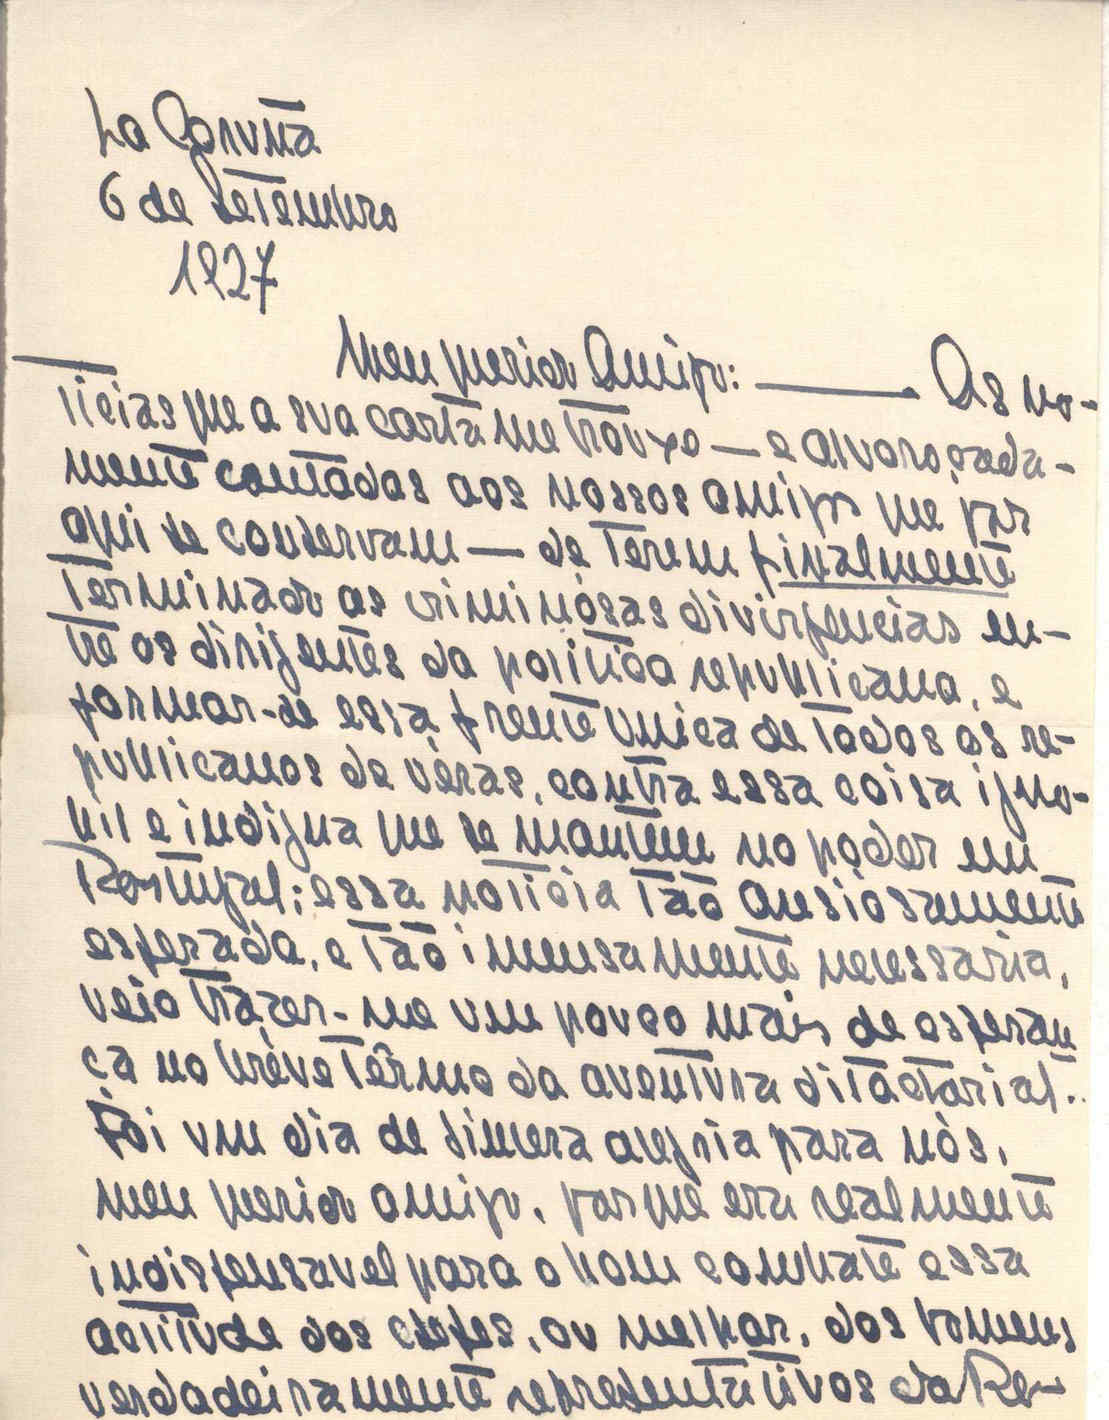 La Coruña
6 de Setembro
1927
Meu querido Amigo: — As no-
ticias que a sua carta me trouxe — e alvoroçada-
mente contadas aos nossos amigos que por
aqui se conservam — de terem finalmente
terminado as criminósas divirgencias en-
tre os dirigentes da politica republicana, e
formar-se essa frente unica de todos os re-
publicanos de véras, contra essa coisa igno-
bil e indigna que se mantem no poder em
Portugal; essa noticia tão anciosamente
esperada, e tão imensamente necessária,
veio trazer-me um pouco mais de esperan
ça no bréve têrmo da aventura ditatorial.
Foi um dia de sincera alegria para nós,
meu querido amigo, porque era realmente
indispensavel para o bom combate essa
actitude dos chefes, ou melhor, dos homens
verdadeiramente representativos da Re-